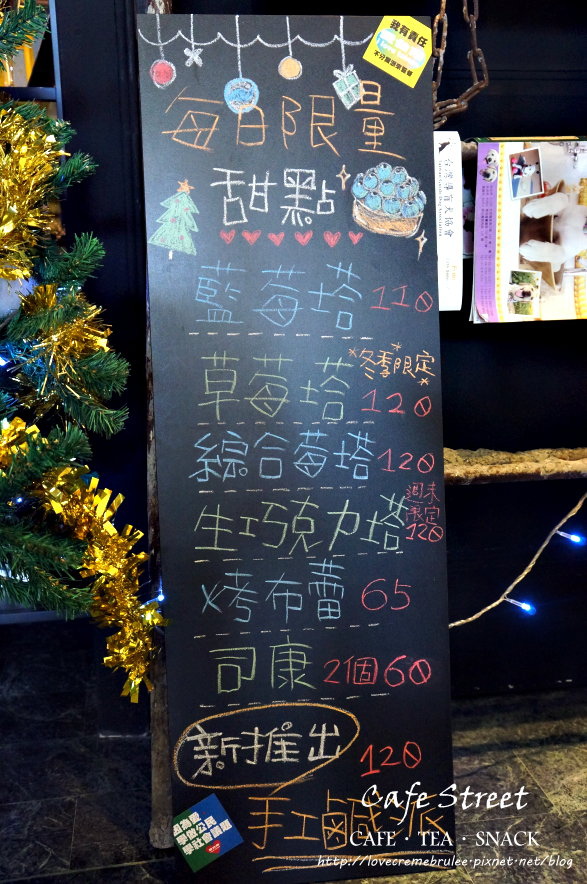 我有責任
每日限量
甜點
藍莓塔 110
*冬季限定*
草莓塔 120
綜合莓塔 120
生巧克力塔 週末限定 120
烤布蕾 65
司康 2個60
新推出 120
手工鹹派
做公民
學社會議題
台灣導盲犬協會
Cafe Street
CAFE · TEA · SNACK
http://lovecremebrulee.pixnet.net/blog